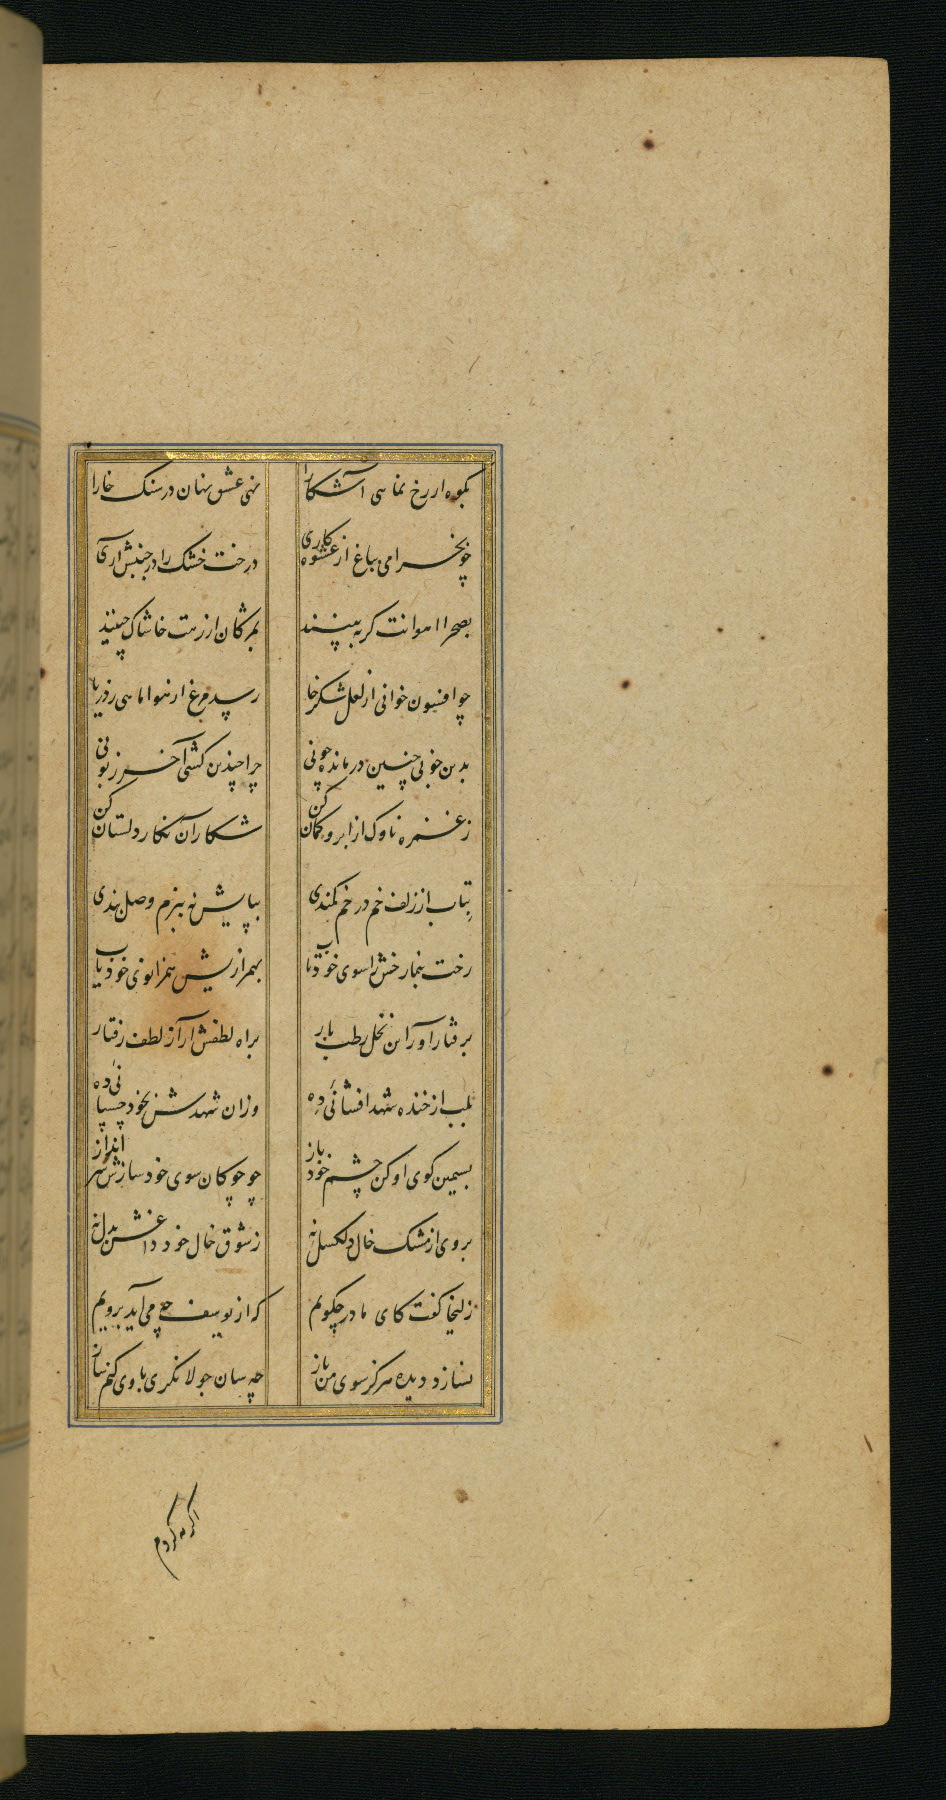 بکوه ار رخ نمایی آشکارا نهی عشق نهان در سنک خارا
چو بخرامی بباغ از عشوه کاری درخت خشک را در جنبش آری
بصحرا آهوانت کر ببینند بمژکان از رهت خاشاک چینند
چو افسون خوانی از لعل شکرخا رسد مرغ از هوا ماهی ز دریا
بدین خوبی چنین درمانده چونی چرا چندین کشی آخر زبونی
ز غمزه ناوک از ابرو کمان کن شکار آن نکار دلستان کن
بتاب از زلف خم در خم کمندی بپایش نه ببزم وصل بندی
رخت بنما رخش را سوی خود تاب بهمرازیش همزانوی خود یاب
برفتار آور آن نخل رطب بار براه لطفش آر از لطف رفتار
بلب از خنده شهد افشانیی ده وزان شهدش بخود چسپانیی ده
بسیمین کوی او کن چشم خود باز چو چوکان سوی خود سازش سر انداز
بروی از مشک خال دلکسل نه ز شوق خال خود داغش بدل نه
زلیخا کفت کای مادر چکویم که از یوسف چه می آید برویم
نسازد دیده هرکز سوی من باز چه سان جولانکری با وی کنم ساز
اکر مه کردم